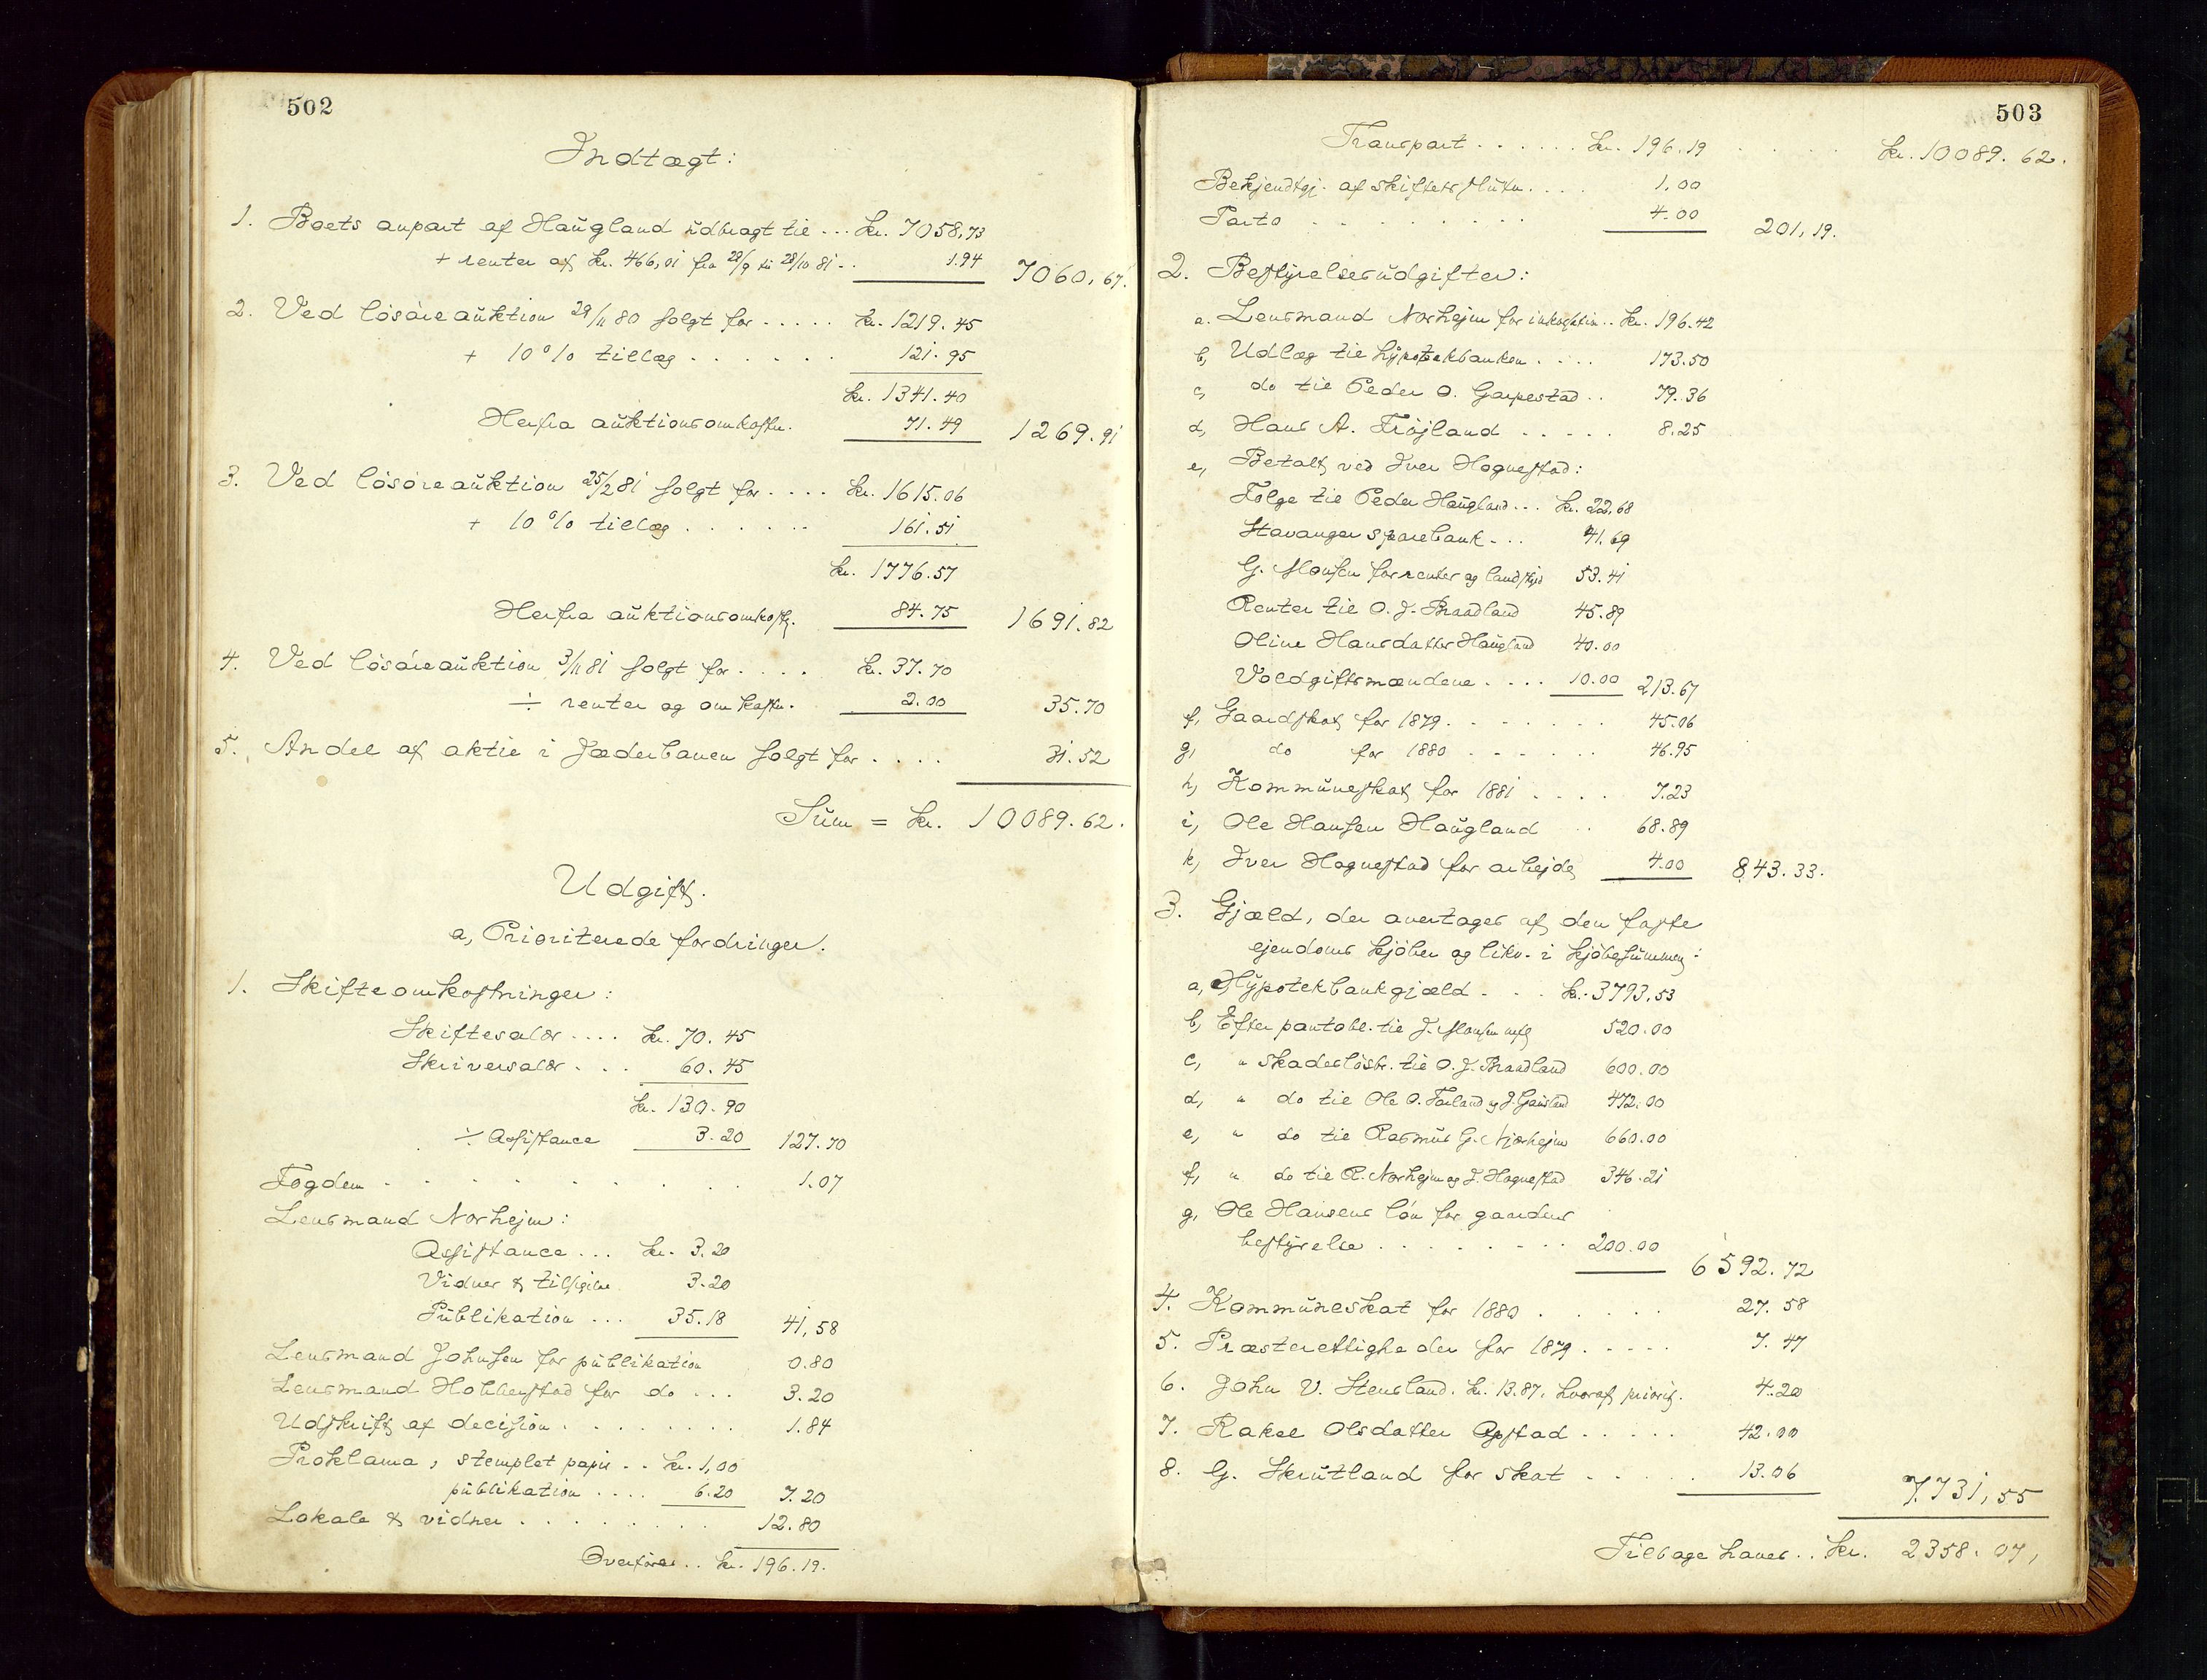 502
Indtægt:
1. Boets anpart af Haugland udbragt til ... kr. 7058,73
+ renter af kr. 466,01 fra 28/9 til 28/10 81 .. 1.94 7060,67.
2. Ved løsøreauktion 29/11 80 solgt for ..... kr. 1219.45
+ 10 % tillæg ...... 121.95
kr. 1341.40
Herfra auktionsomkostn. 71.49 1269.91
3. Ved løsøreauktion 25/2 81 solgt for .... kr. 1615.06
+ 10 % tillæg ...... 161.51
kr. 1776.57
Herfra auktionsomkostn. 84.75 1691.82
4. Ved løsøreauktion 3/11 81 solgt for .... kr. 37.70
÷ renter og omkostn. 2.00 35.70
5. Andel af aktie i Jæderbanen solgt for .... 31.52
Sum = kr. 10089.62.
Udgift.
a, Prioriterede fordringer.
1. Skifteomkostninger:
Skiftesalær .... kr. 70.45
Skriversalær ... 60.45
kr. 130.90
÷ Assistance 3.20 127.70
Fogden .......... 1.07
Lensmand Norhejm:
Assistance ... kr. 3.20
Vidner & tilsigelse 3.20
Publikation ... 35.18 41,58
Lensmand Johnsen for publikation 0.80
Lensmand Hobberstad for do ... 3.20
Udskrift af decision ....... 1.84
Proklama, stemplet papir .. kr. 1,00
publikation .... 6.20 7.20
Lokale & vidner ........ 12.80
Overføres .. kr. 196.19.
503
Transport ...... kr. 196.19 ..... kr. 10089.62.
Bekjendtgj. af skiftets slutn. ... 1.00
Porto ......... 4.00 201,19.
2. Bestyrelsesudgifter:
a. Lensmand Norhejm for .. kr. 196.42
b, Udlæg til hypotekbanken .... 173.50
c, do til Peder O. Garpestad .. 79.36
d, Hans A. Frøjland ..... 8.25
e, Betalt ved Iver Hognestad:
Følge til Peder Haugland ... kr. 22,68
Stavanger sparebank ... 41.69
G. Monsen for renter og landskyld 53.41
Renter til O. J. Braadland 45.89
Oline Hansdatter Haugland 40.00
Voldgiftsmændene .... 10.00 213.67
f, Gaardskat for 1879 ....... 45.06
g, do for 1880 ...... 46.95
h, Kommuneskat for 1881 .... 7.23
i, Ole Hansen Haugland .. 68.89
k, Iver Hognestad for arbejde 4.00 843.33.
3. Gjæld, der overtages af den faste
ejendoms kjøber og likv. i kjøbesummen:
a, Hypotekbankgjæld ... kr. 3793,53
b, Efter pantobl. til J. Monsen 520.00
c, " skadesløsbr. til O. J. Braadland 600.00
d, " do til Ole O. Forland og J. Gausland 472.00
e, " do til Rasmus G. Njærhejm 660.00
f, " do til R. Norhejm og J. Hognestad 346.21
g, Ole Hansens løn for gaardens
bestyrelse ........ 200.00 6592.72
4. Kommuneskat for 1880 ..... 27.58
5. Præsterettigheder for 1879 ..... 7.47
6. John V. Stensland. kr. 13.87, hvoraf priorit. 4.20
7. Rakel Olsdatter ..... 42.00
8. G. Skrutland for skat ..... 13.06 7731,55
Tilbage haves .. kr. 2358.07,